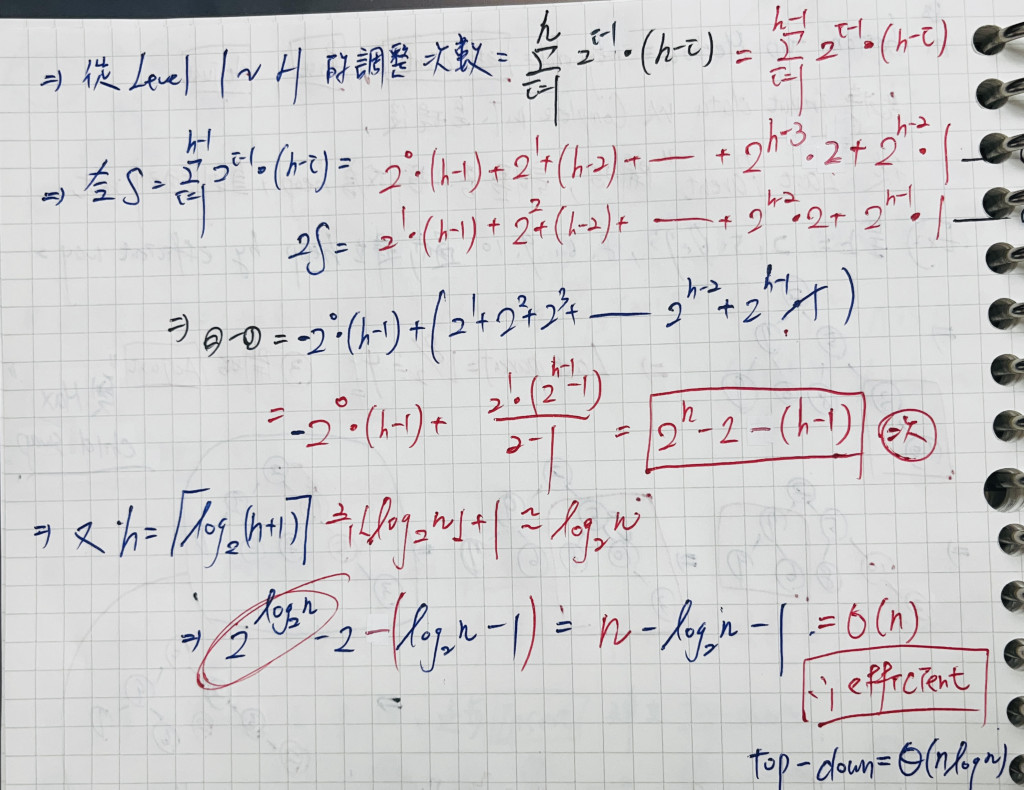 ⇒ 從 Level 1 ~ H 的調整次數 = Σ_{i=1}^{h} 2^{i-1}·(h-i) = Σ_{i=1}^{h-1} 2^{i-1}·(h-i)
⇒ 令 S = Σ_{i=1}^{h-1} 2^{i-1}·(h-i) = 2^0·(h-1) + 2^1+(h-2) + — + 2^{h-3}·2 + 2^{h-2}·1 —
2S = 2^1·(h-1) + 2^2+(h-2) + — + 2^{h-2}·2 + 2^{h-1}·1 —
⇒ ②-① = -2^0·(h-1) + (2^1+2^2+2^3+ — 2^{h-2} + 2^{h-1})
= -2^0·(h-1) + \frac{2^1·(2^{h-1}-1)}{2-1} = 2^h - 2 - (h-1) 次
⇒ 又 h = ⌈log_2(n+1)⌉ ⌊log_2 n⌋ + 1 ≈ log_2 n
⇒ 2^{log_2 n} - 2 - (log_2 n - 1) = n - log_2 n - 1 = O(n)
∴ efficient
top-down = Θ(n log n)